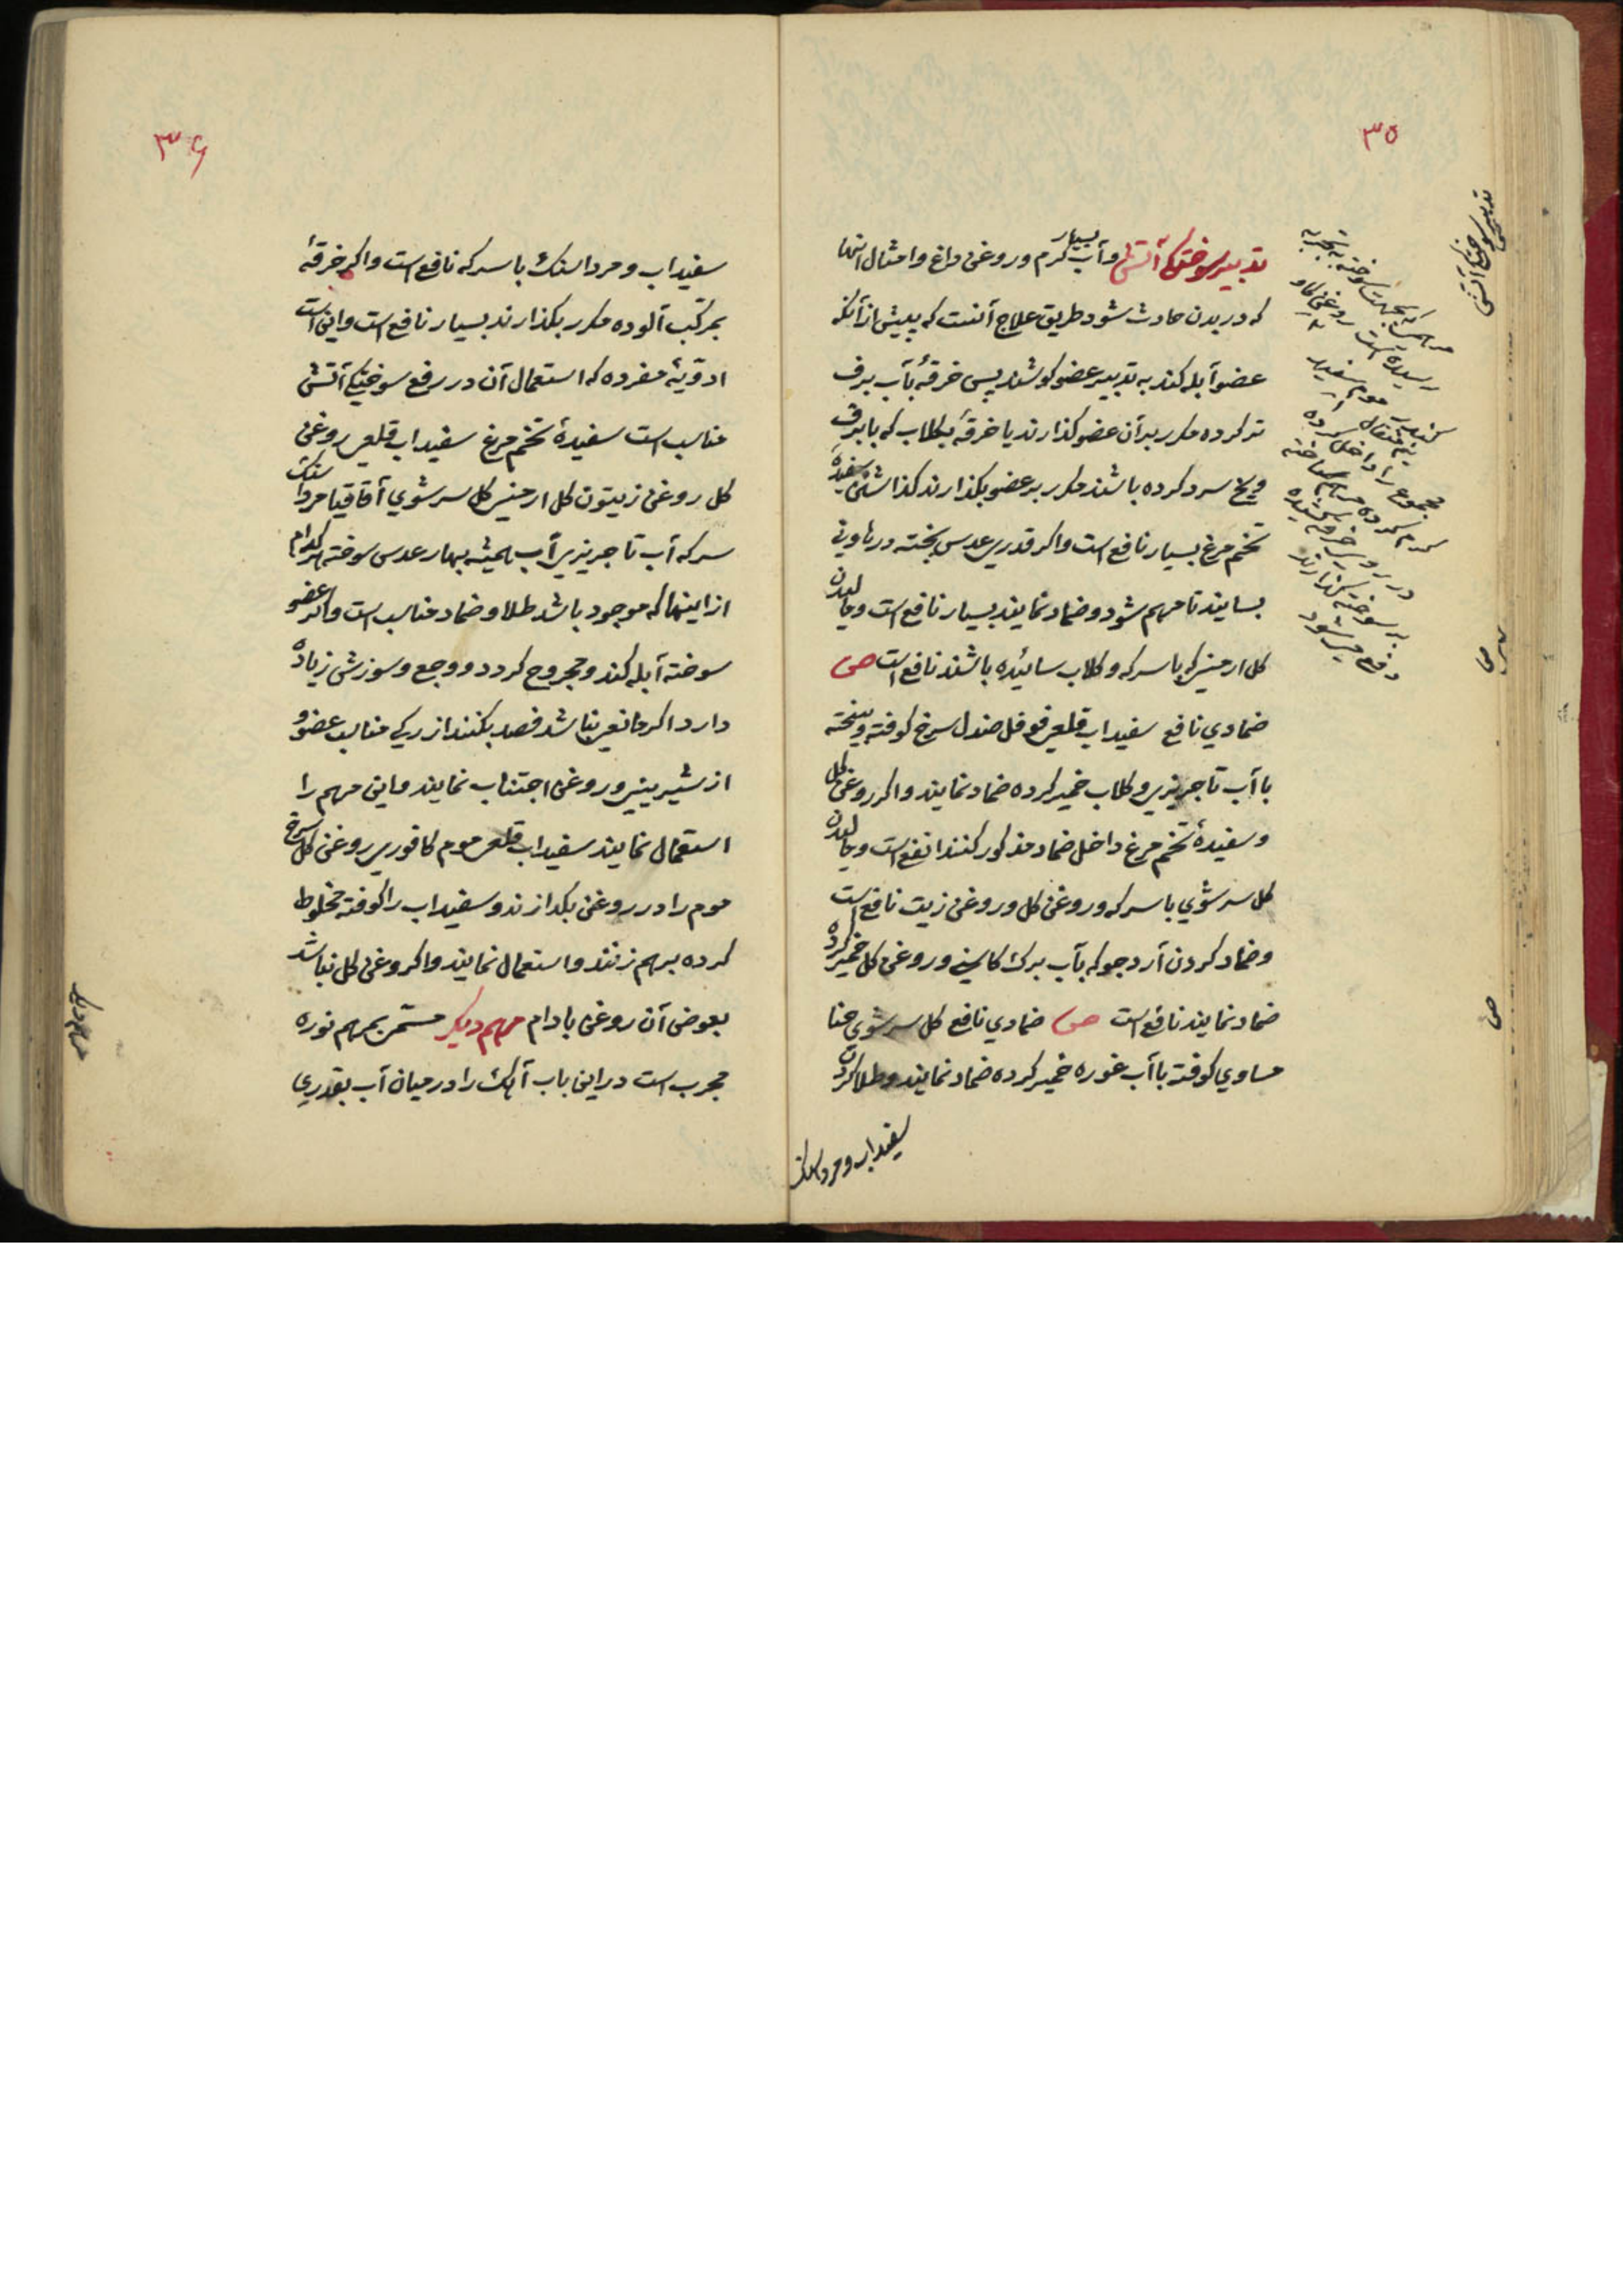 ۳۵
تدبیر سوختگی آتش
تدبیر سوختگی آتش و آب بسیار گرم و روغن داغ و امثال اینها
که در بدن حادث شود طریق علاج آنست که پیش از آنکه
عضو آبله کند به تدبیر عضو کوشند پس خرقهٔ بآب برف
تر کرده مکرر بر آن عضو گذارند یا خرقهٔ بگلاب که با برف
و یخ سرد کرده باشند مکرر بر عضو بگذارند گذاشتن سفیدهٔ
تخم مرغ بسیار نافع است و اگر قدری عدس پخته در هاونی
بسایند تا مرهم شود و ضماد نمایند بسیار نافع است و مالیدن
گل ارمنی که با سرکه و گلاب سائیده باشند نافع است ص
ضمادی نافع سفیداب قلعی فوفل صندل سرخ کوفته و بیخته
با آب تاجریزی و گلاب خمیر کرده ضماد نمایند و اگر روغن گل
و سفیدهٔ تخم مرغ داخل ضماد مذکور کنند انفع است و مالیدن
گل سرشوی با سرکه و روغن گل و روغن زیت نافع است
و ضماد کردن آرد جو که بآب برک کاسنی و روغن گل خمیر کرده
ضماد نمایند نافع است ص ضمادی نافع گل سرشوی حنا
مساوی کوفته با آب غوره خمیر کرده ضماد نمایند و طلا کردن
سفیداب و مرداسنک
مرهم که بجهت سوخته بتجربه
رسیده است روغن گاو
موم سفید
مجموع را داخل کرده
گرم کرده مرهم ساخته
بر سوختگی گذارند
دفع میشود
ص
ص
۳۶
سفیداب و مرداسنک با سرکه نافع است و اگر خرقهٔ
بمرکب آلوده مکرر بگذارند بسیار نافع است و این است
ادویهٔ مفرده که استعمال آن در رفع سوختگی آتش
مناسب است سفیدهٔ تخم مرغ سفیداب قلعی روغن
گل روغن زیتون گل ارمنی گل سرشوی آقاقیا مرداسنک
سرکه آب تاجریزی آب همیشه بهار عدس سوخته هر کدام
از اینها که موجود باشد طلا و ضماد مناسب است و اگر عضو
سوخته آبله کند و مجروح گردد و وجع و سوزش زیاده
دارد اگر مانعی نباشد فصد بکنند از رگی مناسب عضو و
از شیرینی و روغن اجتناب نمایند و این مرهم را
استعمال نمایند سفیداب قلعی موم کافوری روغن گل سرخ
موم را در روغن بگدازند و سفیداب را کوفته مخلوط
کرده برهم زنند و استعمال نمایند و اگر روغن گل نباشد
بعوض آن روغن بادام مرهم دیگر مسمی بمرهم نوره
مجرب است در این باب آهک را در میان آب بقدری
مرهم دیگر